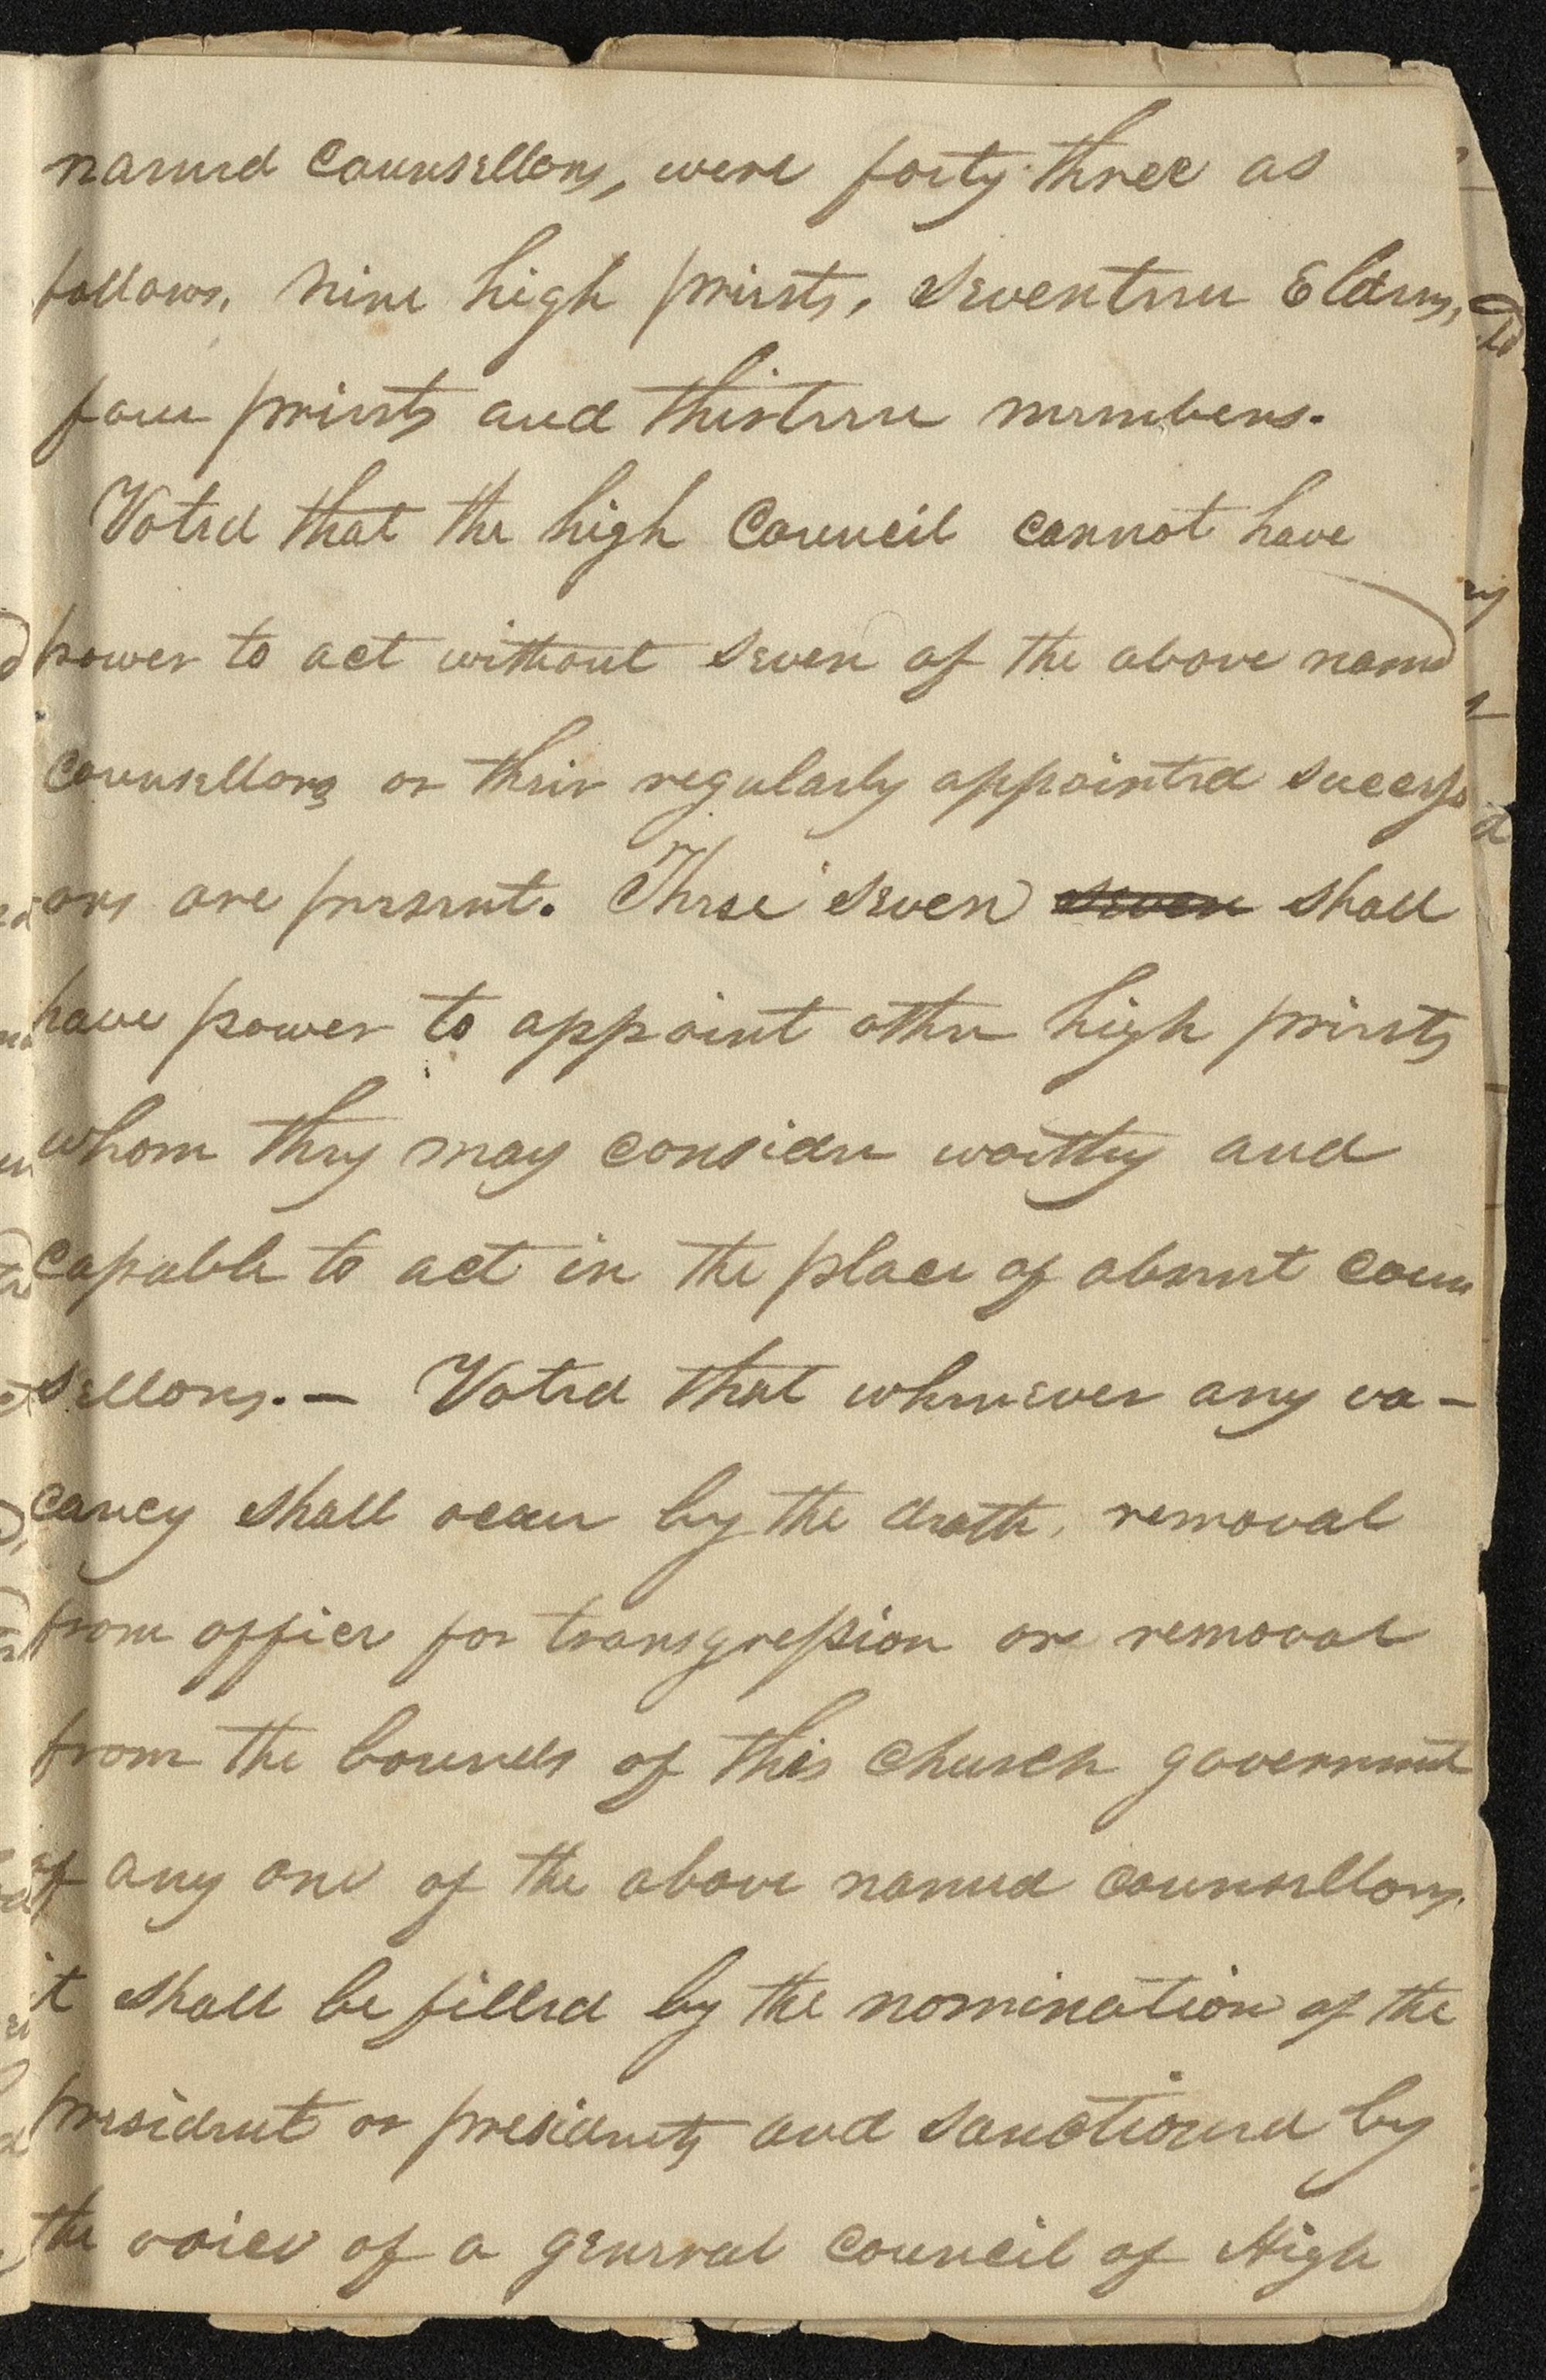 named counsellors, were forty three as
follows, nine high priests, seventeen Elders,
four priests and thirteen members.
Voted that the high Council cannot have
power to act without seven of the above named
counsellors or their regularly appointed success
ors are present. These seven seven shall
have power to appoint other high priests
whom they may consider worthy and
capable to act in the place of absent coun
sellors. — Voted that whenever any va-
cancy shall occur by the death, removal
from office for transgression or removal
from the bounds of this church government
of any one of the above named counsellors,
it shall be filled by the nomination of the
president or presidents and sanctioned by
the voice of a general council of High